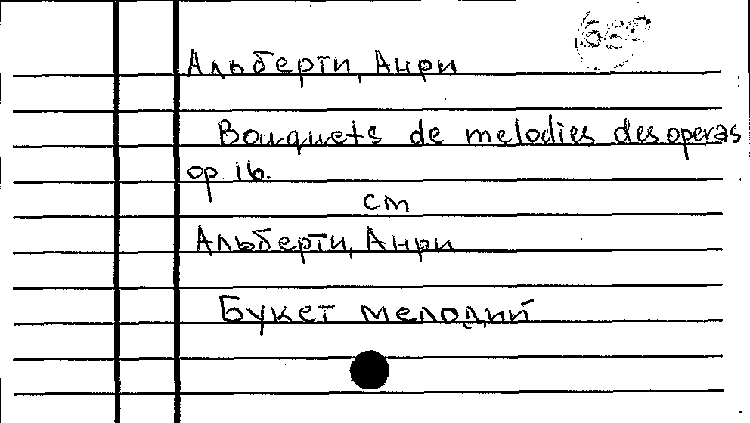 Альберти, Анри
Bouquets de melodies des operas
op 16.
см
Альберти, Анри
Букет мелодий